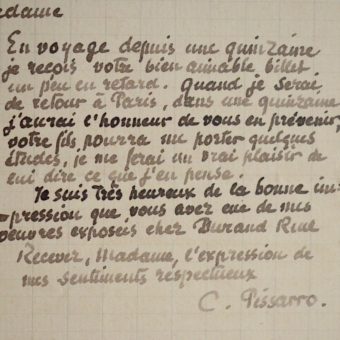 adame
En voyage depuis une quinzaine
je reçois votre bien aimable billet
un peu en retard. Quand je serai
de retour à Paris, dans une quinzaine
j'aurai l'honneur de vous en prévenir,
votre fils pourra me porter quelques
études, je me ferai un vrai plaisir de
lui dire ce que j'en pense.
Je suis très heureux de la bonne im-
-pression que vous avez eue de mes
oeuvres exposées chez Durand Ruel
Recevez, Madame, l'expression de
mes sentiments respectueux
C. Pissarro.